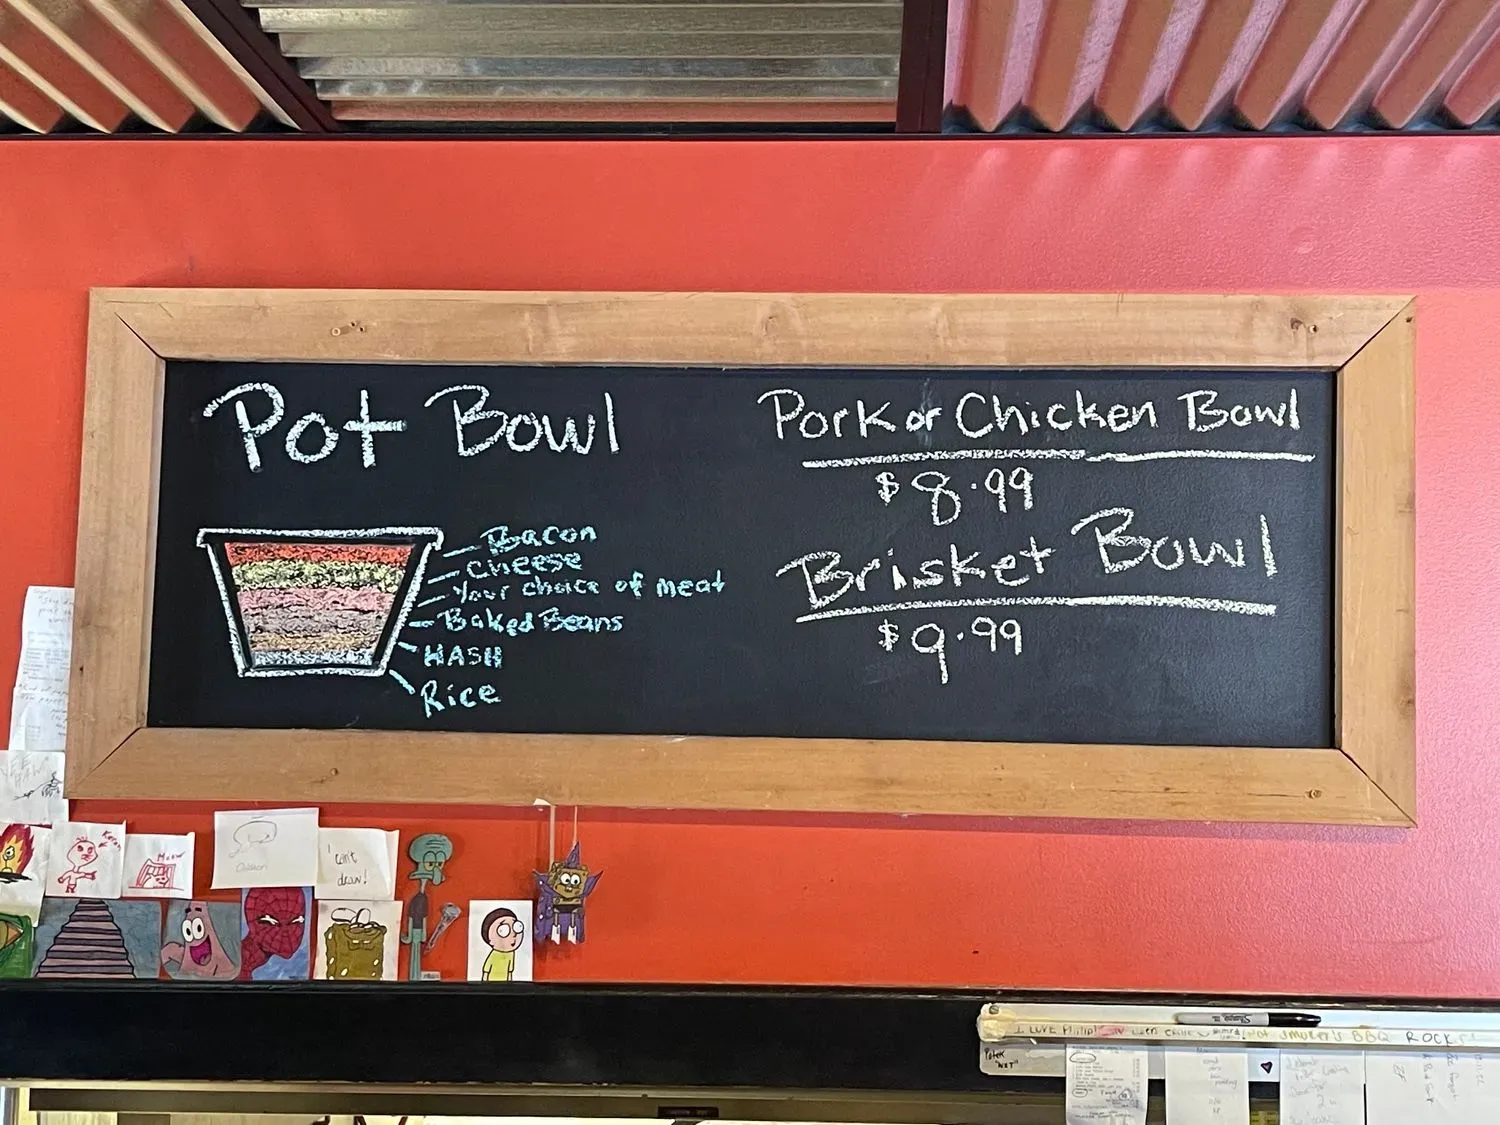 Pot Bowl
Bacon
Cheese
Your choice of meat
Baked Beans
HASH
Rice
Pork or Chicken Bowl
$8.99
Brisket Bowl
$9.99
YEE
HAW
Karen
Meow
I can't
draw!
Sharpie
I LOVE Philip
SMOKER'S BBQ ROCK